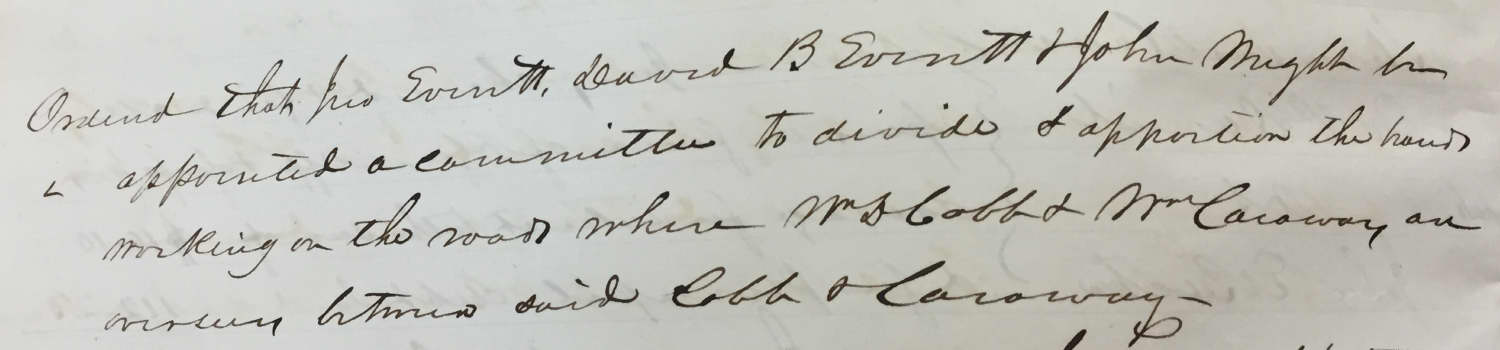 Ordered that Jno Everitt, David B Everitt & John Wright be
appointed a committee to divide & apportion the hands
working on the roads where Wm D Cobb & Wm Caraway are
overseers between said Cobb & Caraway